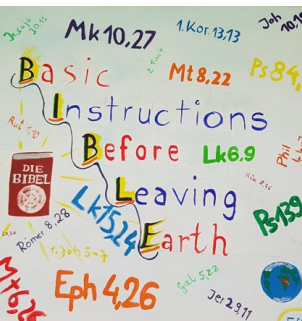 Jesaja 30,15
Mk 10,27
1. Kor 13,13
Joh
Basic
2 Tim
Mt 8,22
Ps 84,
Instructions
Rut 1,10
Before
Lk 6,9
Phil
DIE
BIBEL
Leaving
Lk 15,24
Ps 139
Römer 8,28
Earth
1. Joh 5-7
Gal 5,22
Mt 6,26
Eph 4,26
Jer 29,11